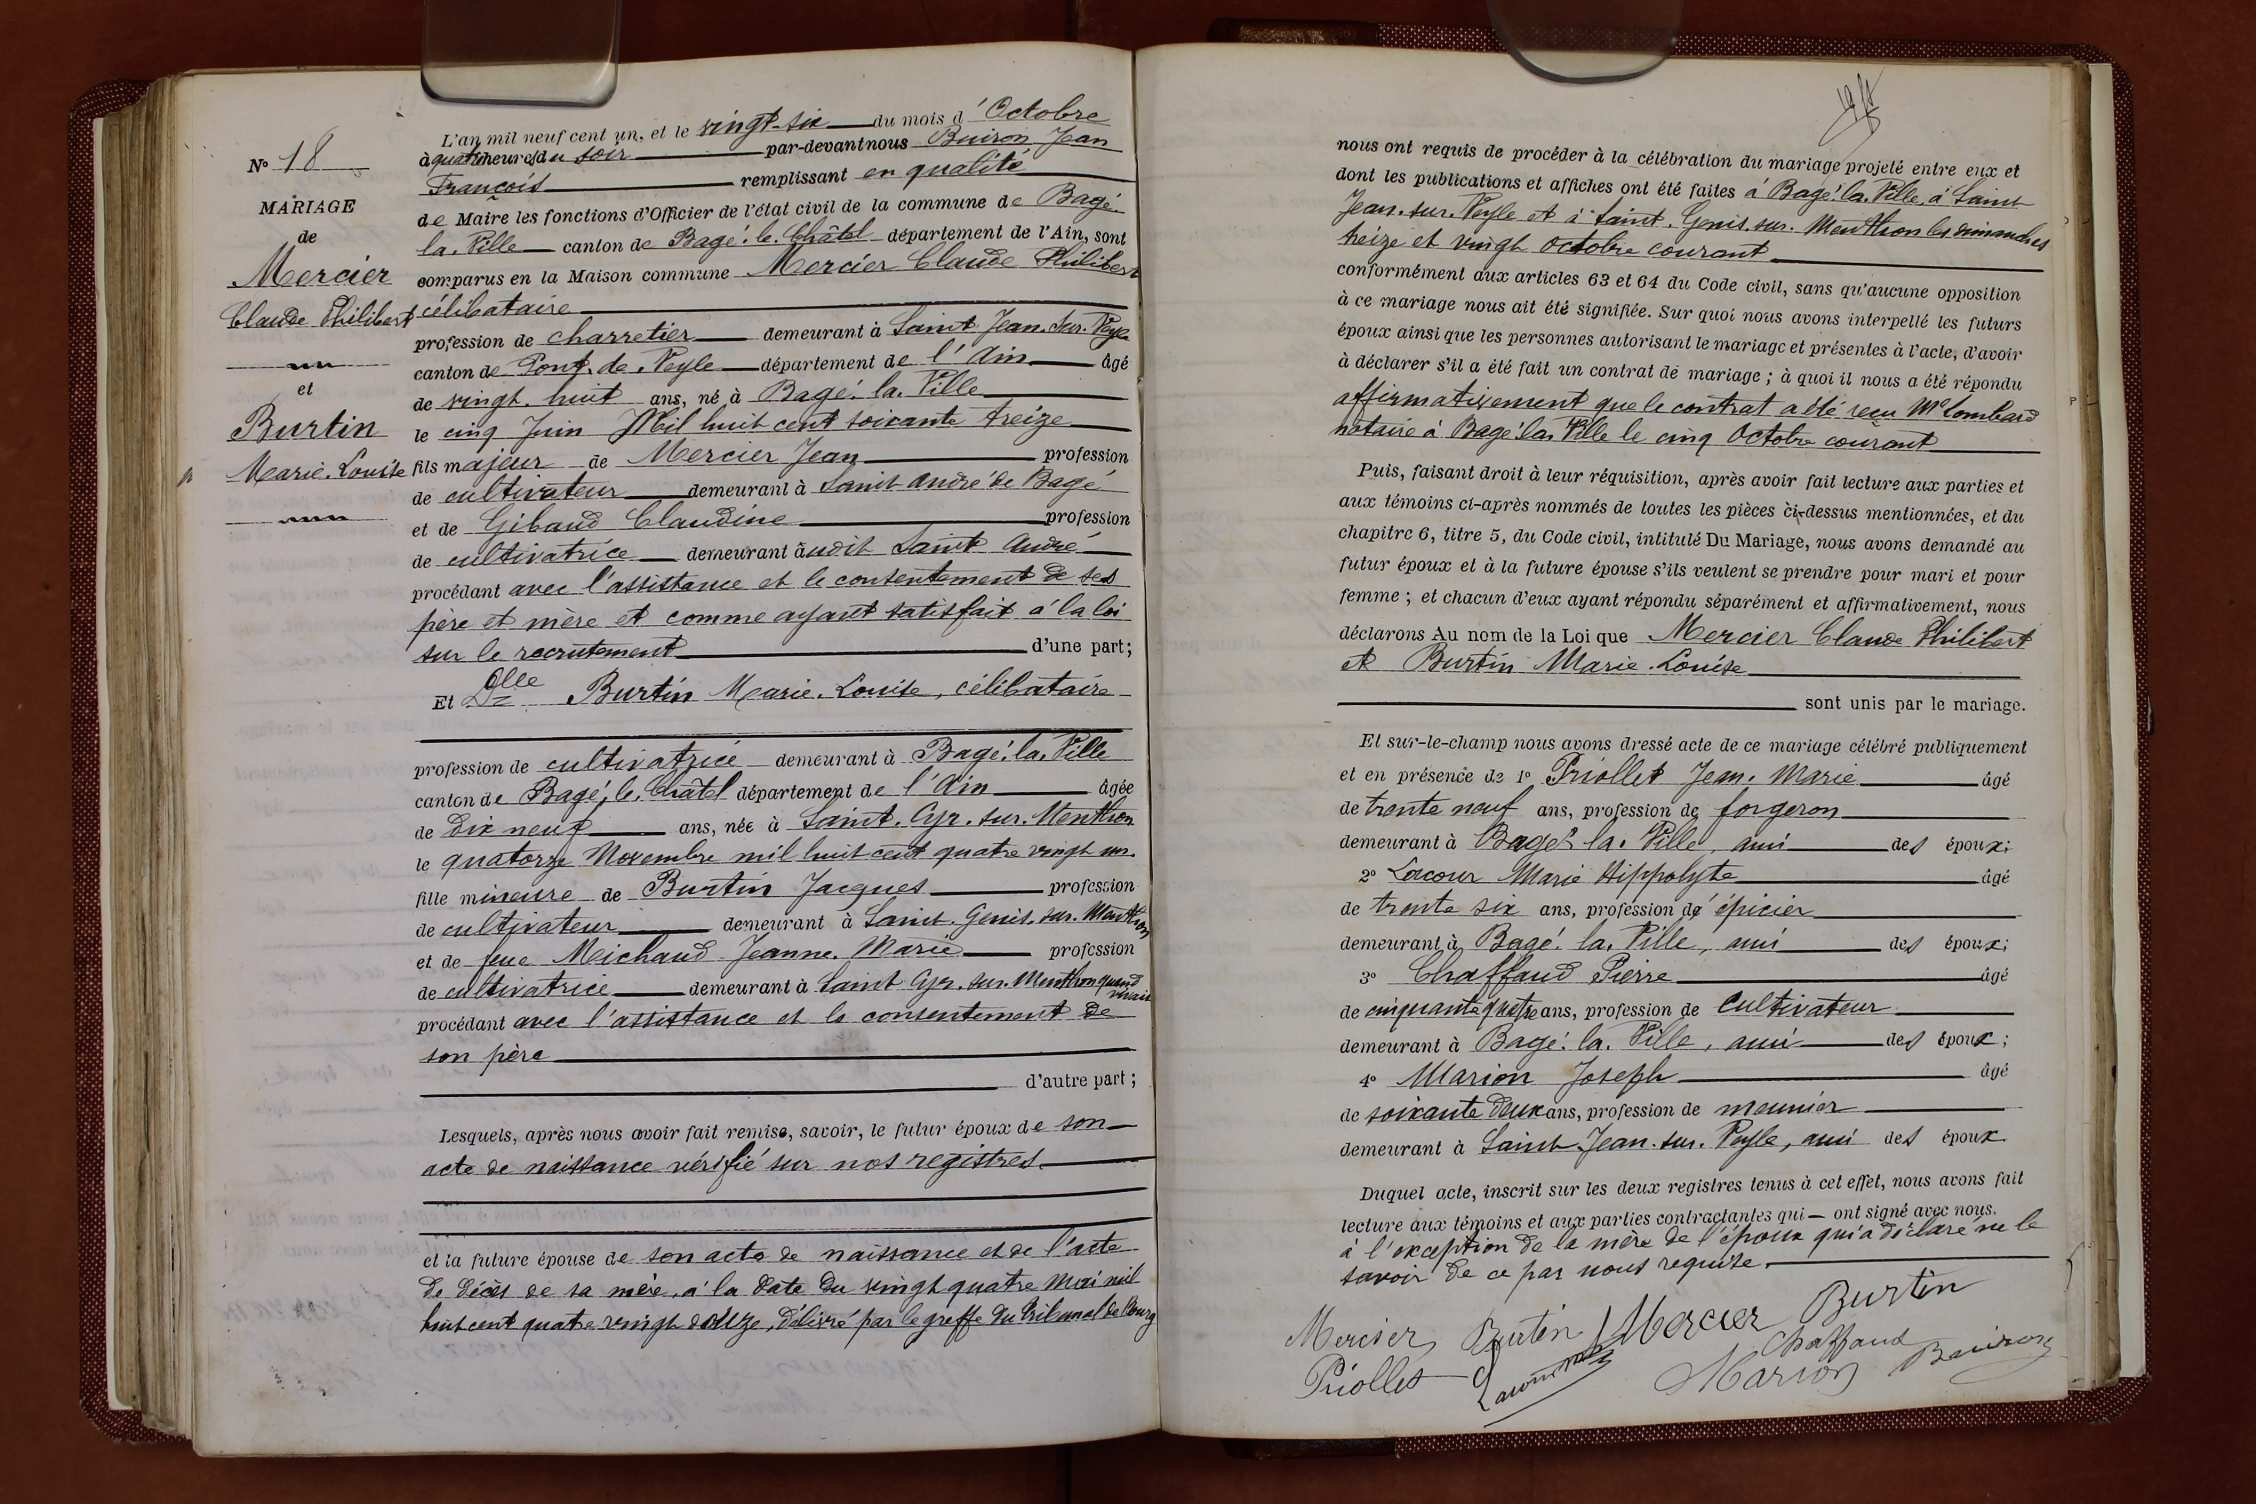 N° 18
MARIAGE
de
Mercier
Claude Philibert
et
Burtin
Marie. Louise
L'an mil neuf cent un, et le vingt-six du mois d'Octobre
à quatre heures du soir par-devant nous Buiron Jean
François remplissant en qualité
de Maire les fonctions d'Officier de l'état civil de la commune de Bagé
la. Ville canton de Bagé. le. Châtel département de l'Ain, sont
comparus en la Maison commune Mercier Claude Philibert
célibataire
profession de charretier demeurant à Saint Jean. sur. Veyle
canton de Pont. de. Veyle département de l'Ain âgé
de vingt. huit ans, né à Bagé. la. Ville
le cinq Juin Mil huit cent soixante treize
fils majeur de Mercier Jean profession
de cultivateur demeurant à Saint André de Bagé
et de Gibaud Claudine profession
de cultivatrice demeurant audit Saint André
procédant avec l'assistance et le consentement de ses
père et mère et comme ayant satisfait à la loi
sur le recrutement d'une part;
Et Dlle Burtin Marie. Louise, célibataire
profession de cultivatrice demeurant à Bagé. la. Ville
canton de Bagé. le. Châtel département de l'Ain âgée
de dix neuf ans, née à Saint. Cyr. sur. Menthon
le quatorze Novembre mil huit cent quatre vingt un.
fille mineure de Burtin Jacques profession
de cultivateur demeurant à Saint. Genis. sur. Menthon
et de feue Meichaud Jeanne. Marie profession
de cultivatrice demeurant à Saint Cyr. sur. Menthon quand vivait
procédant avec l'assistance et le consentement de
son père
d'autre part;
Lesquels, après nous avoir fait remise, savoir, le futur époux de son
acte de naissance vérifié sur nos registres.
et la future épouse de son acte de naissance et de l'acte
de décès de sa mère, à la date du vingt quatre Mai mil
huit cent quatre vingt douze, délivré par le greffe du tribunal de Bourg
nous ont requis de procéder à la célébration du mariage projeté entre eux et
dont les publications et affiches ont été faites à Bagé. la. Ville, à Saint
Jean. sur. Veyle et à Saint. Genis. sur. Menthon les dimanches
treize et vingt octobre courant
conformément aux articles 63 et 64 du Code civil, sans qu'aucune opposition
à ce mariage nous ait été signifiée. Sur quoi nous avons interpellé les futurs
époux ainsi que les personnes autorisant le mariage et présentes à l'acte, d'avoir
à déclarer s'il a été fait un contrat de mariage; à quoi il nous a été répondu
affirmativement que le contrat a été reçu Me Lombard
notaire à Bagé. la. Ville le cinq Octobre courant
Puis, faisant droit à leur réquisition, après avoir fait lecture aux parties et
aux témoins ci-après nommés de toutes les pièces ci-dessus mentionnées, et du
chapitre 6, titre 5, du Code civil, intitulé Du Mariage, nous avons demandé au
futur époux et à la future épouse s'ils veulent se prendre pour mari et pour
femme; et chacun d'eux ayant répondu séparément et affirmativement, nous
déclarons Au nom de la Loi que Mercier Claude Philibert
et Burtin Marie. Louise
sont unis par le mariage.
Et sur-le-champ nous avons dressé acte de ce mariage célébré publiquement
et en présence de 1° Priollet Jean. Marie âgé
de trente neuf ans, profession de forgeron
demeurant à Bagé. la. Ville, ami des époux;
2° Lacour Marie Hippolyte âgé
de trente six ans, profession d'épicier
demeurant à Bagé. la. Ville, ami des époux;
3° Chaffaud Pierre âgé
de cinquante quatre ans, profession de cultivateur
demeurant à Bagé. la. Ville, ami des époux;
4° Marion Joseph âgé
de soixante deux ans, profession de meunier
demeurant à Saint Jean. sur. Veyle, ami des époux
Duquel acte, inscrit sur les deux registres tenus à cet effet, nous avons fait
lecture aux témoins et aux parties contractantes qui ont signé avec nous.
à l'exception de la mère de l'époux qui a déclaré ne le
savoir de ce par nous requise.
Mercier Burtin Mercier Burtin
Priollet Lacour Chaffaud
Marion Buiron